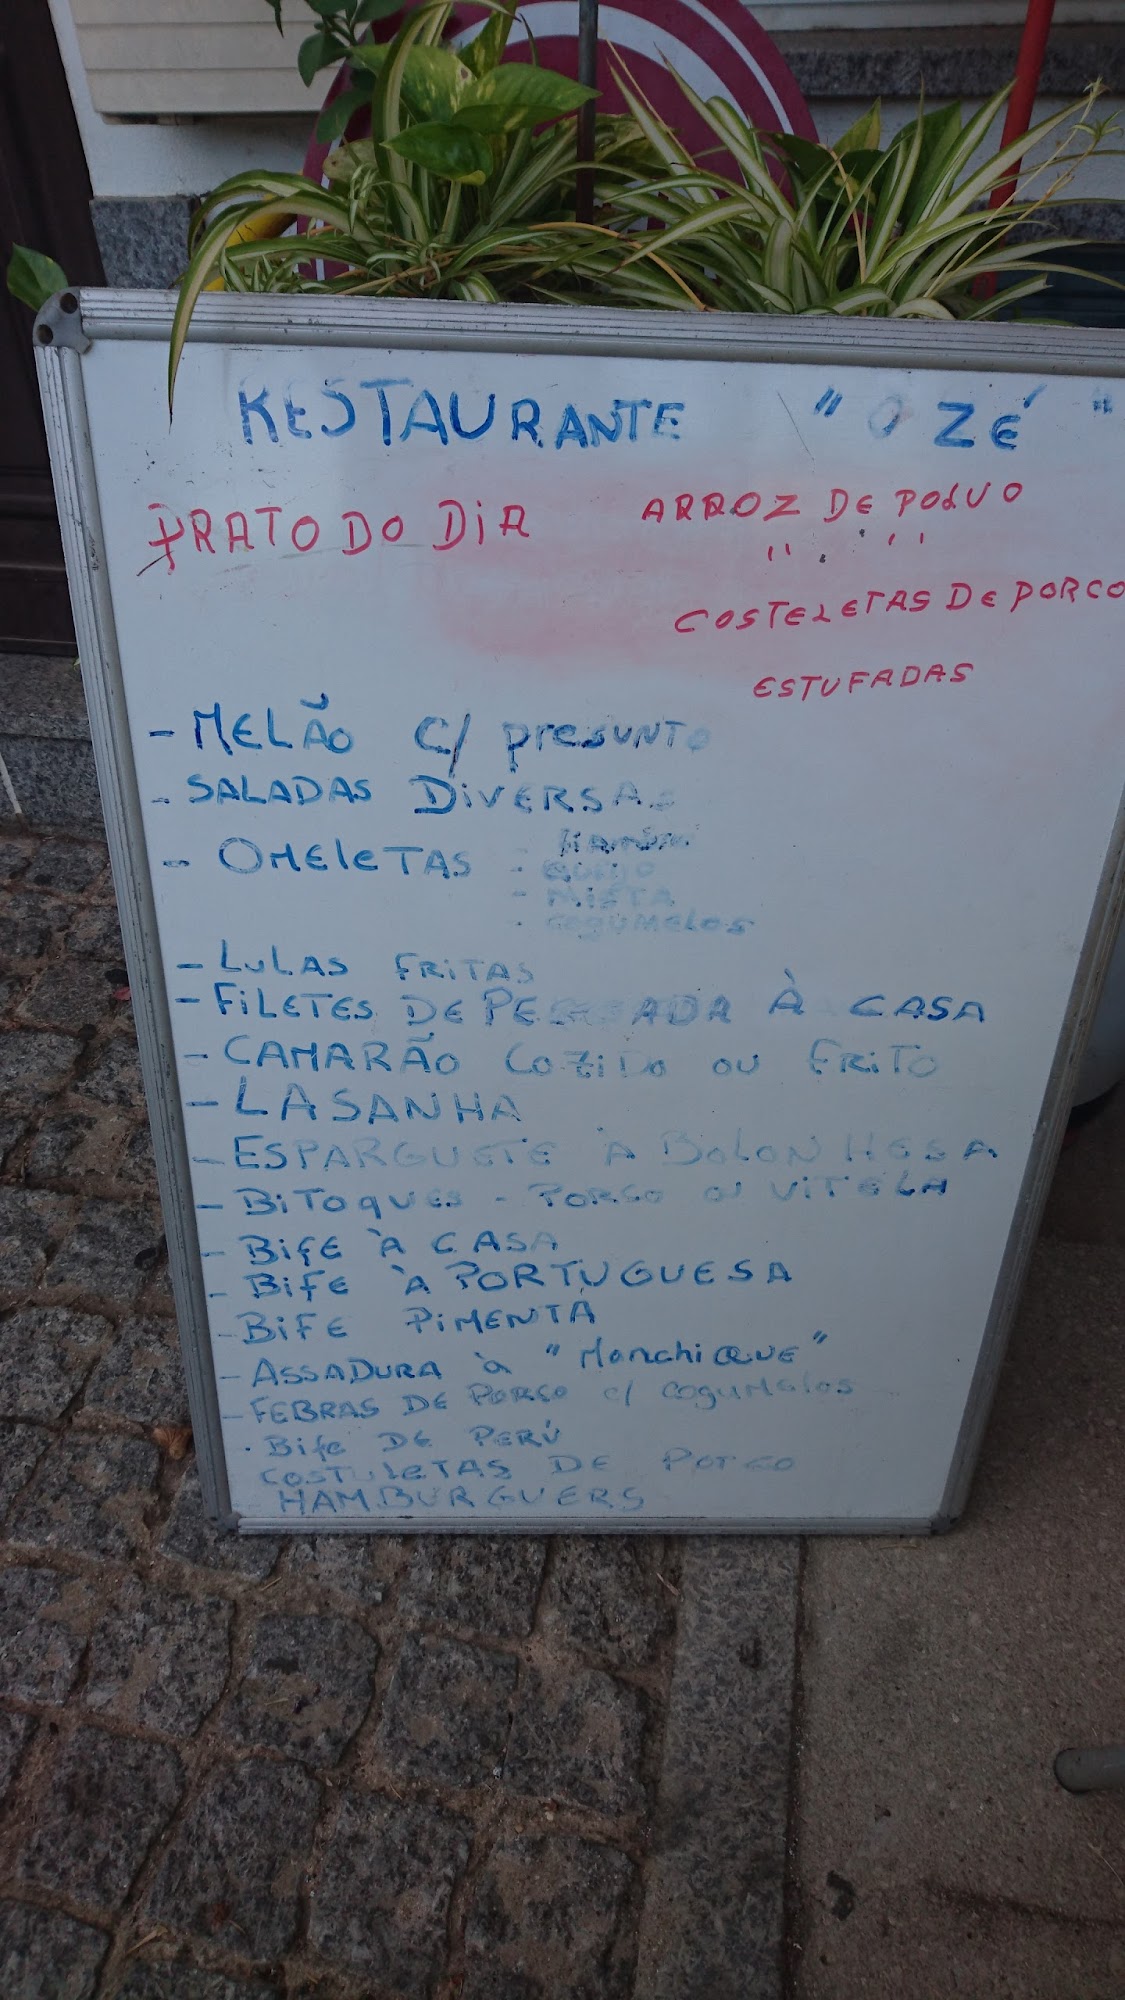 RESTAURANTE " O ZÉ "
PRATO DO DIA ARROZ DE POLVO
" . ' ' '
COSTELETAS DE PORCO
ESTUFADAS
- MELÃO C/ presunto
- SALADAS DIVERSAS
- OMELETAS - fiambre
- queijo
- MISTA
- cogumelos
- LULAS FRITAS
- FILETES DE PESCADA À CASA
- CAMARÃO COZIDO OU FRITO
- LASANHA
- ESPARGUETE À BOLONHESA
- BITOQUES - PORCO OU VITELA
- BifE À CASA
- BIFE À PORTUGUESA
- BIFE PIMENTA
- ASSADURA à "MonchiQUE"
- FEBRAS DE PORCO c/ COGUMELOS
. Bife DE PERÚ
COSTULETAS DE PORCO
HAMBURGUERS